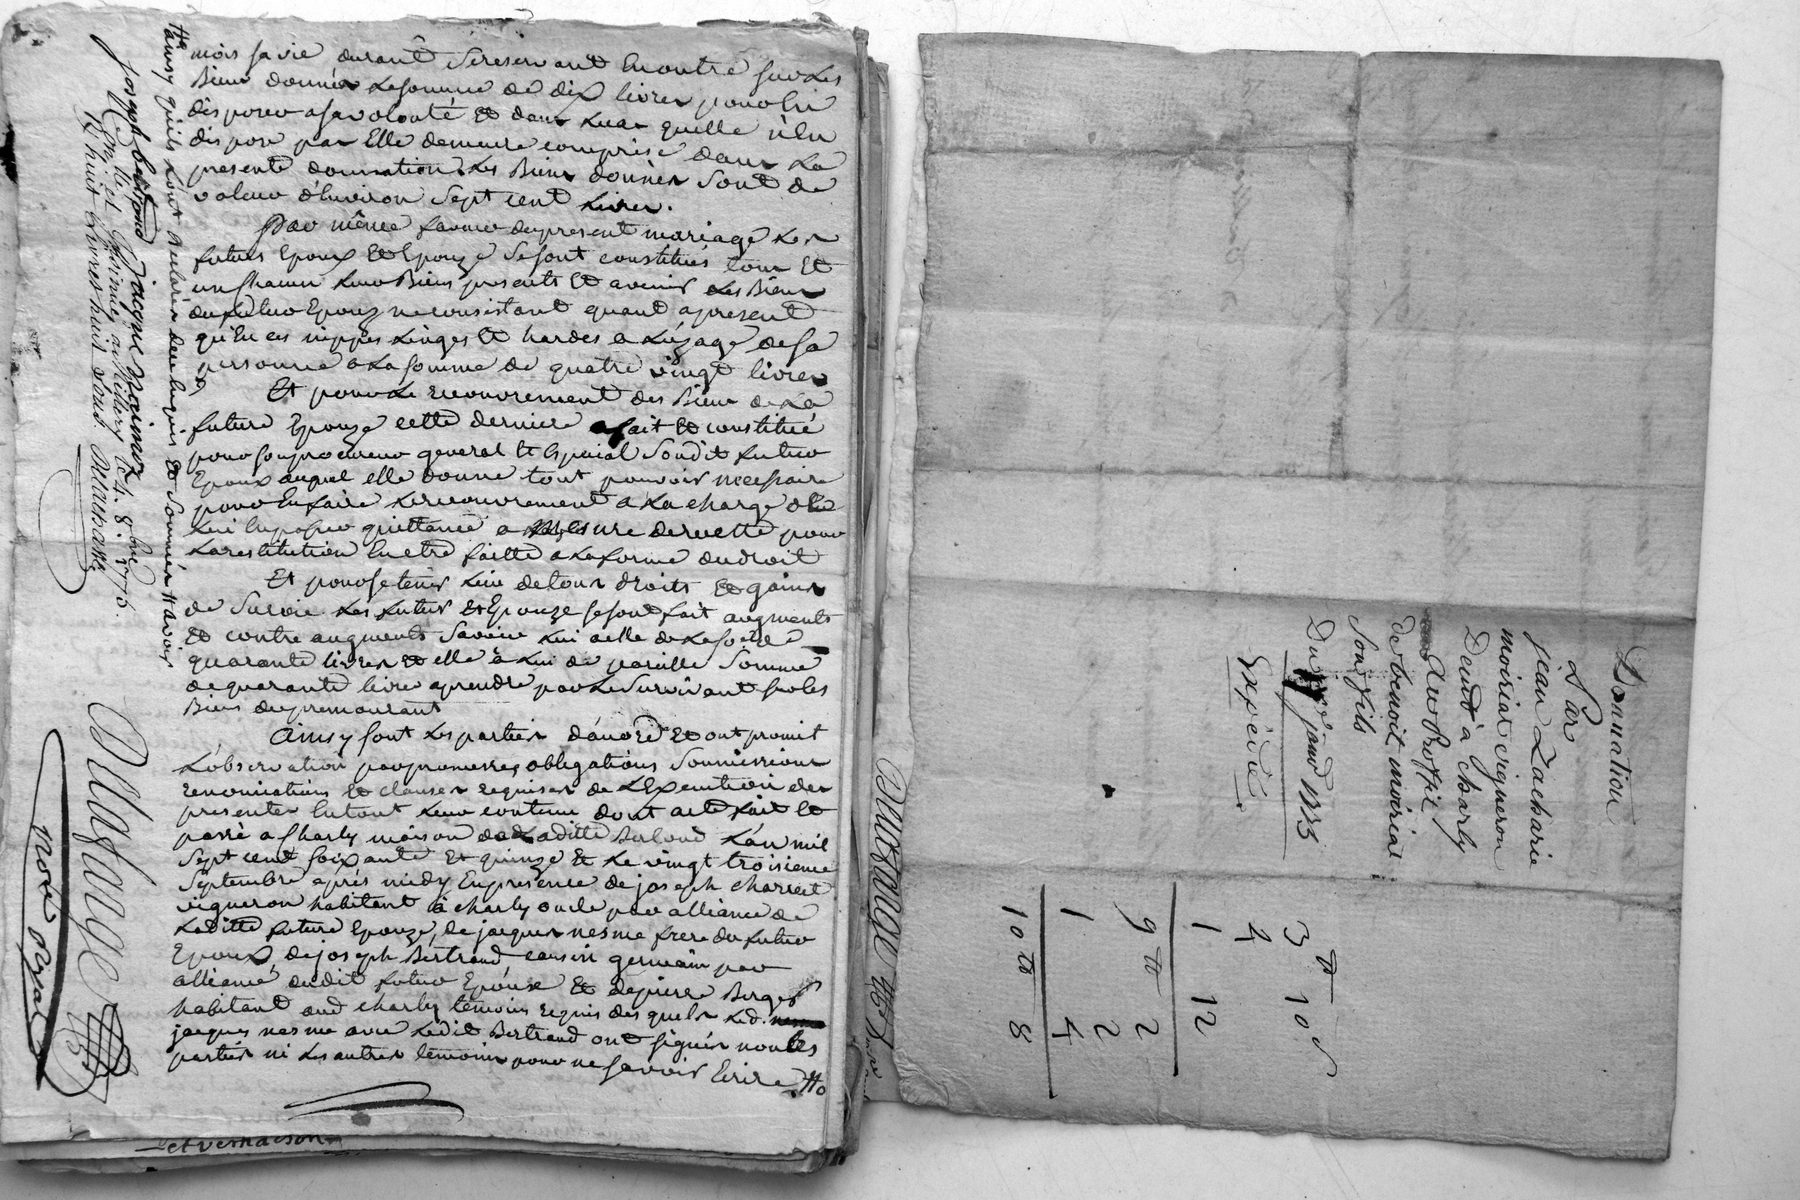 mois sa vie durant Se reservant En outre sur Les
Biens donnés La somme de dix livres pour En
disposer a sa volonté Et dans Le cas quelle n'En
dispose par Elle demeure comprise dans La
presente donnation Les Biens donnés sont de
valeur d'Environ Sept cent Livres.
Par même faveur du present mariage Les
futurs Epoux Et Epouze Se sont constitués tous Et
un chacun Leurs Biens presents Et avenir Les Biens
du futur Epoux ne consistant quant a present
qu'En ses nippes Linges Et hardes a L'uzage de Sa
personne a La somme de quatre vingt livres
Et pour Le recouvrement des Biens de La
future Epouze cette derniere a fait Et constitué
pour son procureur general Et special Son dit futur
Epoux auquel elle donne tout pouvoir necessaire
pour En faire Le recouvrement a La charge de
Lui En passer quittance a mesure de recette pour
La restitution En etre faitte a La forme du droit
Et pour se tenir Lieu de tous droits Et gains
de Survie Les futurs Et Epouze se sont fait augments
Et contre augments Savoir Lui a elle de La somme
quarante livres Et elle à Lui de pareille Somme
de quarante livre a prendre par Le Survivant sur les
Biens du premourant
Ainsy sont Les parties d'accord Et ont promit
L'observation par promesses obligations Soumissions
renonciations Et clauses requises de L'Execution des
presentes En tout Leur contenu dont acte fait Et
passé a Charly maison de Laditte L'an mil
Sept cent soixante Et quinze Et Le vingt troisieme
Septembre après midy En presence de joseph charret
vigneron habitant à charly oncle par alliance de
Laditte future Epouze, de jacques nesme frere du futur
Epoux de joseph Bertrand cousin germain par
alliance dudit futur Epoux Et de pierre Berger
habitant aud charly temoins requis des quels Led.
jacques nesme avec Ledit Bertrand ont signés non les
parties ni Les autres temoins pour ne savoir Ecrire #o
#o ainsy qu'ils L'ont declarés de ce Enquis Et Sommés
joseph bertrand jacque
Controllé Et a millery Le 4. 8bre 1775.
R huit Livres huit sols.
not. Royal
et vernaison
Donnation
Par
jean Zacharie
moiriat vigneron
Demt à charly
Au Proffit
de benoit moiriat
Son fils
Du janer 1773
Expedié.
3 # 10 s
4
1 12
9 # 2
2
1 4
10 # 8